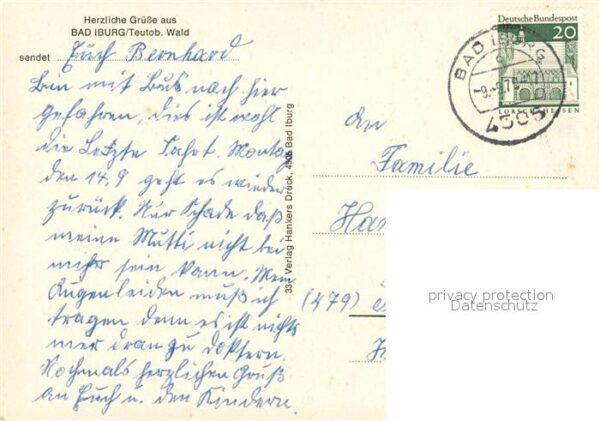 Herzliche Grüße aus
BAD IBURG/Teutob. Wald
sendet Euch Bernhard
Bin mit Bus nach hier
gefahren, dies ist wohl
die Letzte Fahrt. Montag
den 14.9 geht es wieder
zurück. Nur Schade daß
meine Mutti nicht bei
mihr sein kann. Mein
Augenleiden muß ich
tragen denn es ist nichts
mer dran zu doktern.
Nochmals herzlichen Gruß
an Euch u. den Kindern.
334 Verlag Hankers Druck, 4505 Bad Iburg
Deutsche Bundespost
20
LORSCH HESSEN
BAD IBURG
4505
An
Familie
(479)
privacy protection
Datenschutz